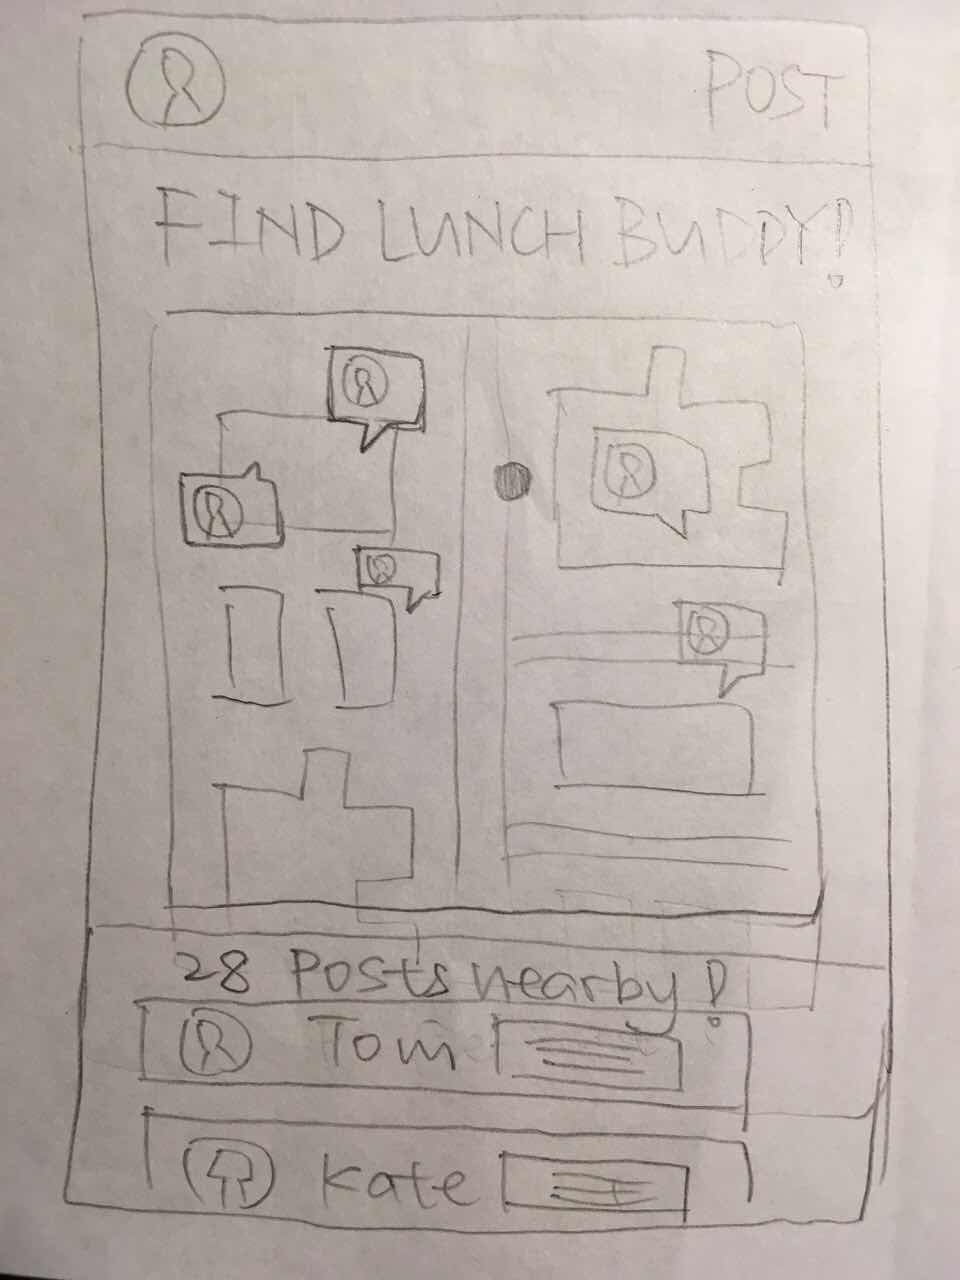 POST
FIND LUNCH BUDDY!
28 Posts nearby!
Tom
Kate